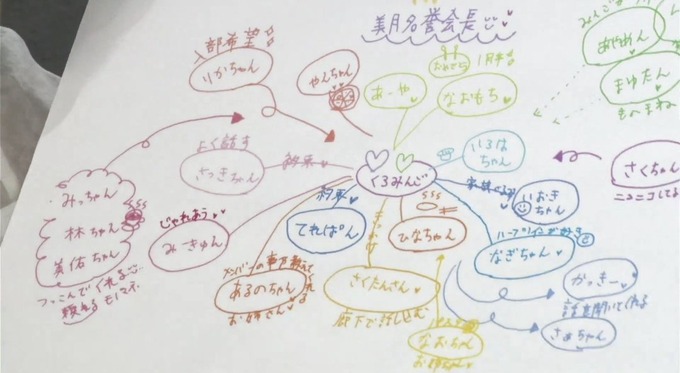 美月名誉会長
部希望
りかちゃん
やんちゃん
あーや
1月生
おれでぃ
なおもち
あやめん
まゆたん
ものまね
よく話す
さつきちゃん
約束
いろは
ちゃん
くろみんじ
さくちゃん
ニコニコしてる
みっちゃん
林ちゃん
美佑ちゃん
つっこんでくれる
頼れる
じゃれあう
みーきゅん
約束
てれぱん
ひなちゃん
いおき
ちゃん
なぎちゃん
あるのちゃん
お姉さん
さくたんさん
廊下で話し込む
なおちゃん
かっきー
話を聞いてくれる
さぁちゃん